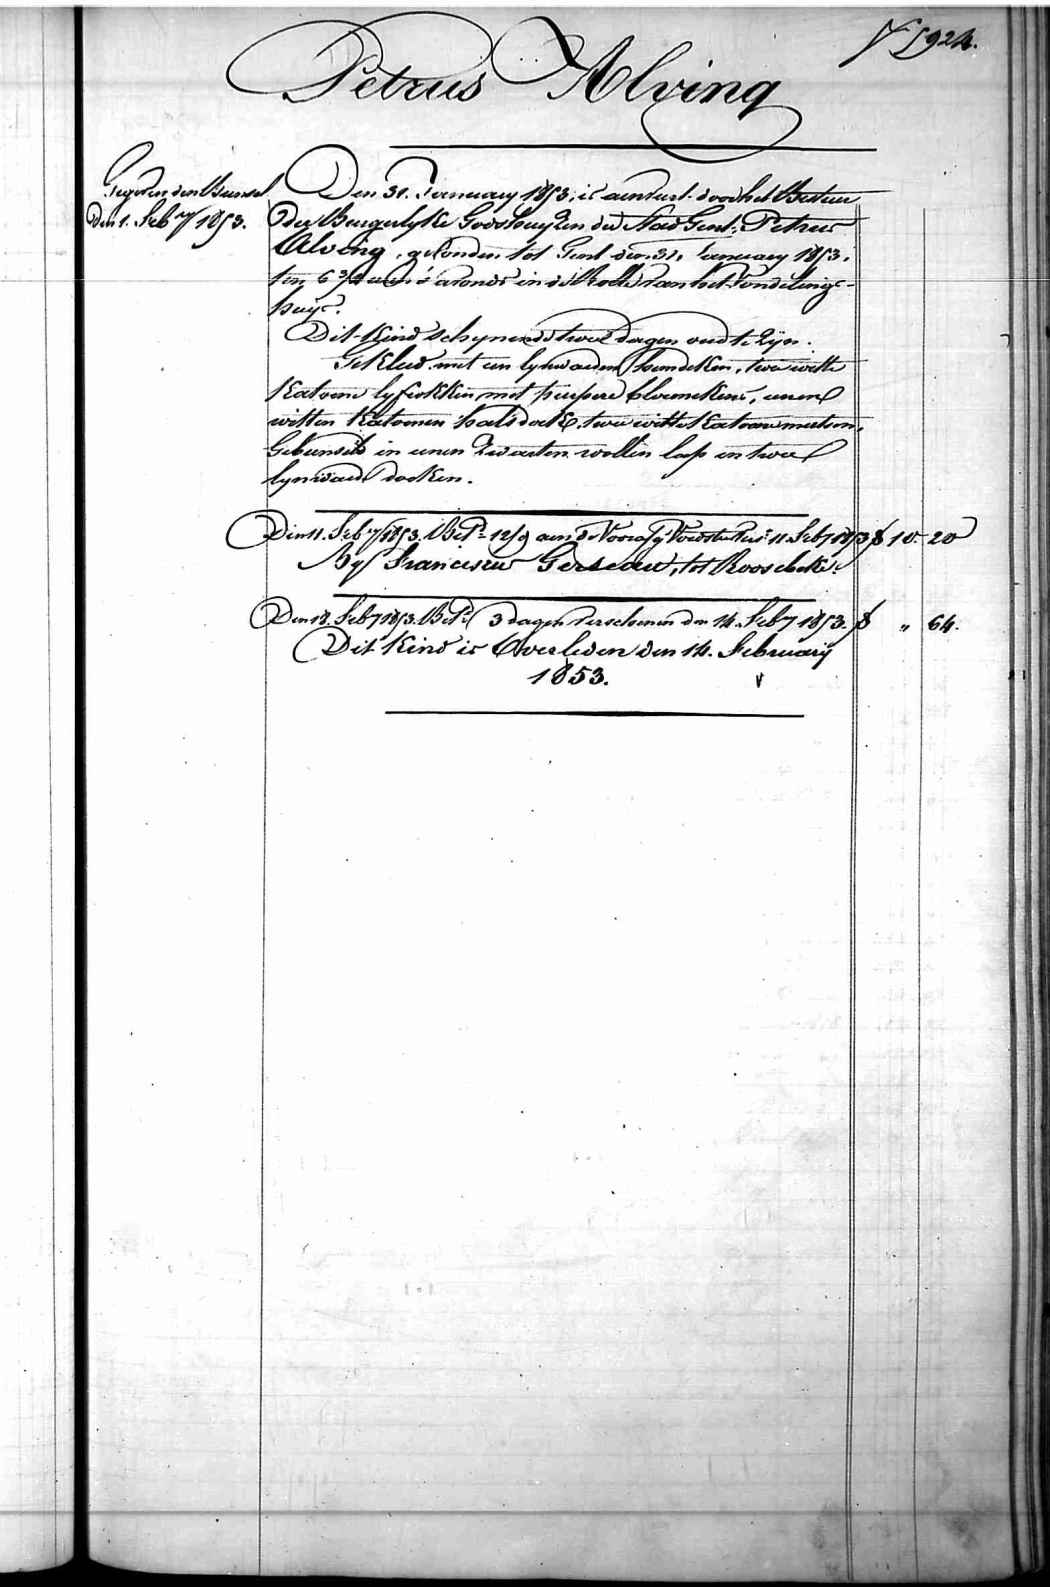 924.
Petrus Alving
Gegeven den Bunsel
Den 1. Feb.ry 1853.
Den 31. January 1853, is aenveerd door het Bestuer
der Burgerlyke Godshuyzen der Stad Gent: Petrus
Alving, gevonden tot Gent den 31. January 1853,
ten 6 3/4 uren 's avonds in de Rolle van het Vondeling-
huys.
Dit Kind schynende twee dagen oud te zyn.
Gekleed met een lynwaeden hemdeken, twee witte
katoene lyfrokken met purpere bloemekens, eenen
witten katoenen halsdoek, twee witte katoene mutsen.
Gebunseld in eenen zwarten wollen lap en twee
lynwaed doeken.
Den 11. Feb.ry 1853. Bet.d 12/9 aen de Voorsz. Voedster Pens. 11 Feb.y 1853 f 10 - 20
By Franciscus Gerseau, tot Roosebeke.
Den 18. Feb.y 1853. Bet.d 3 dagen verschenen den 14. Feb.y 1853. f " 64.
Dit Kind is Overleden den 14. February
1853.